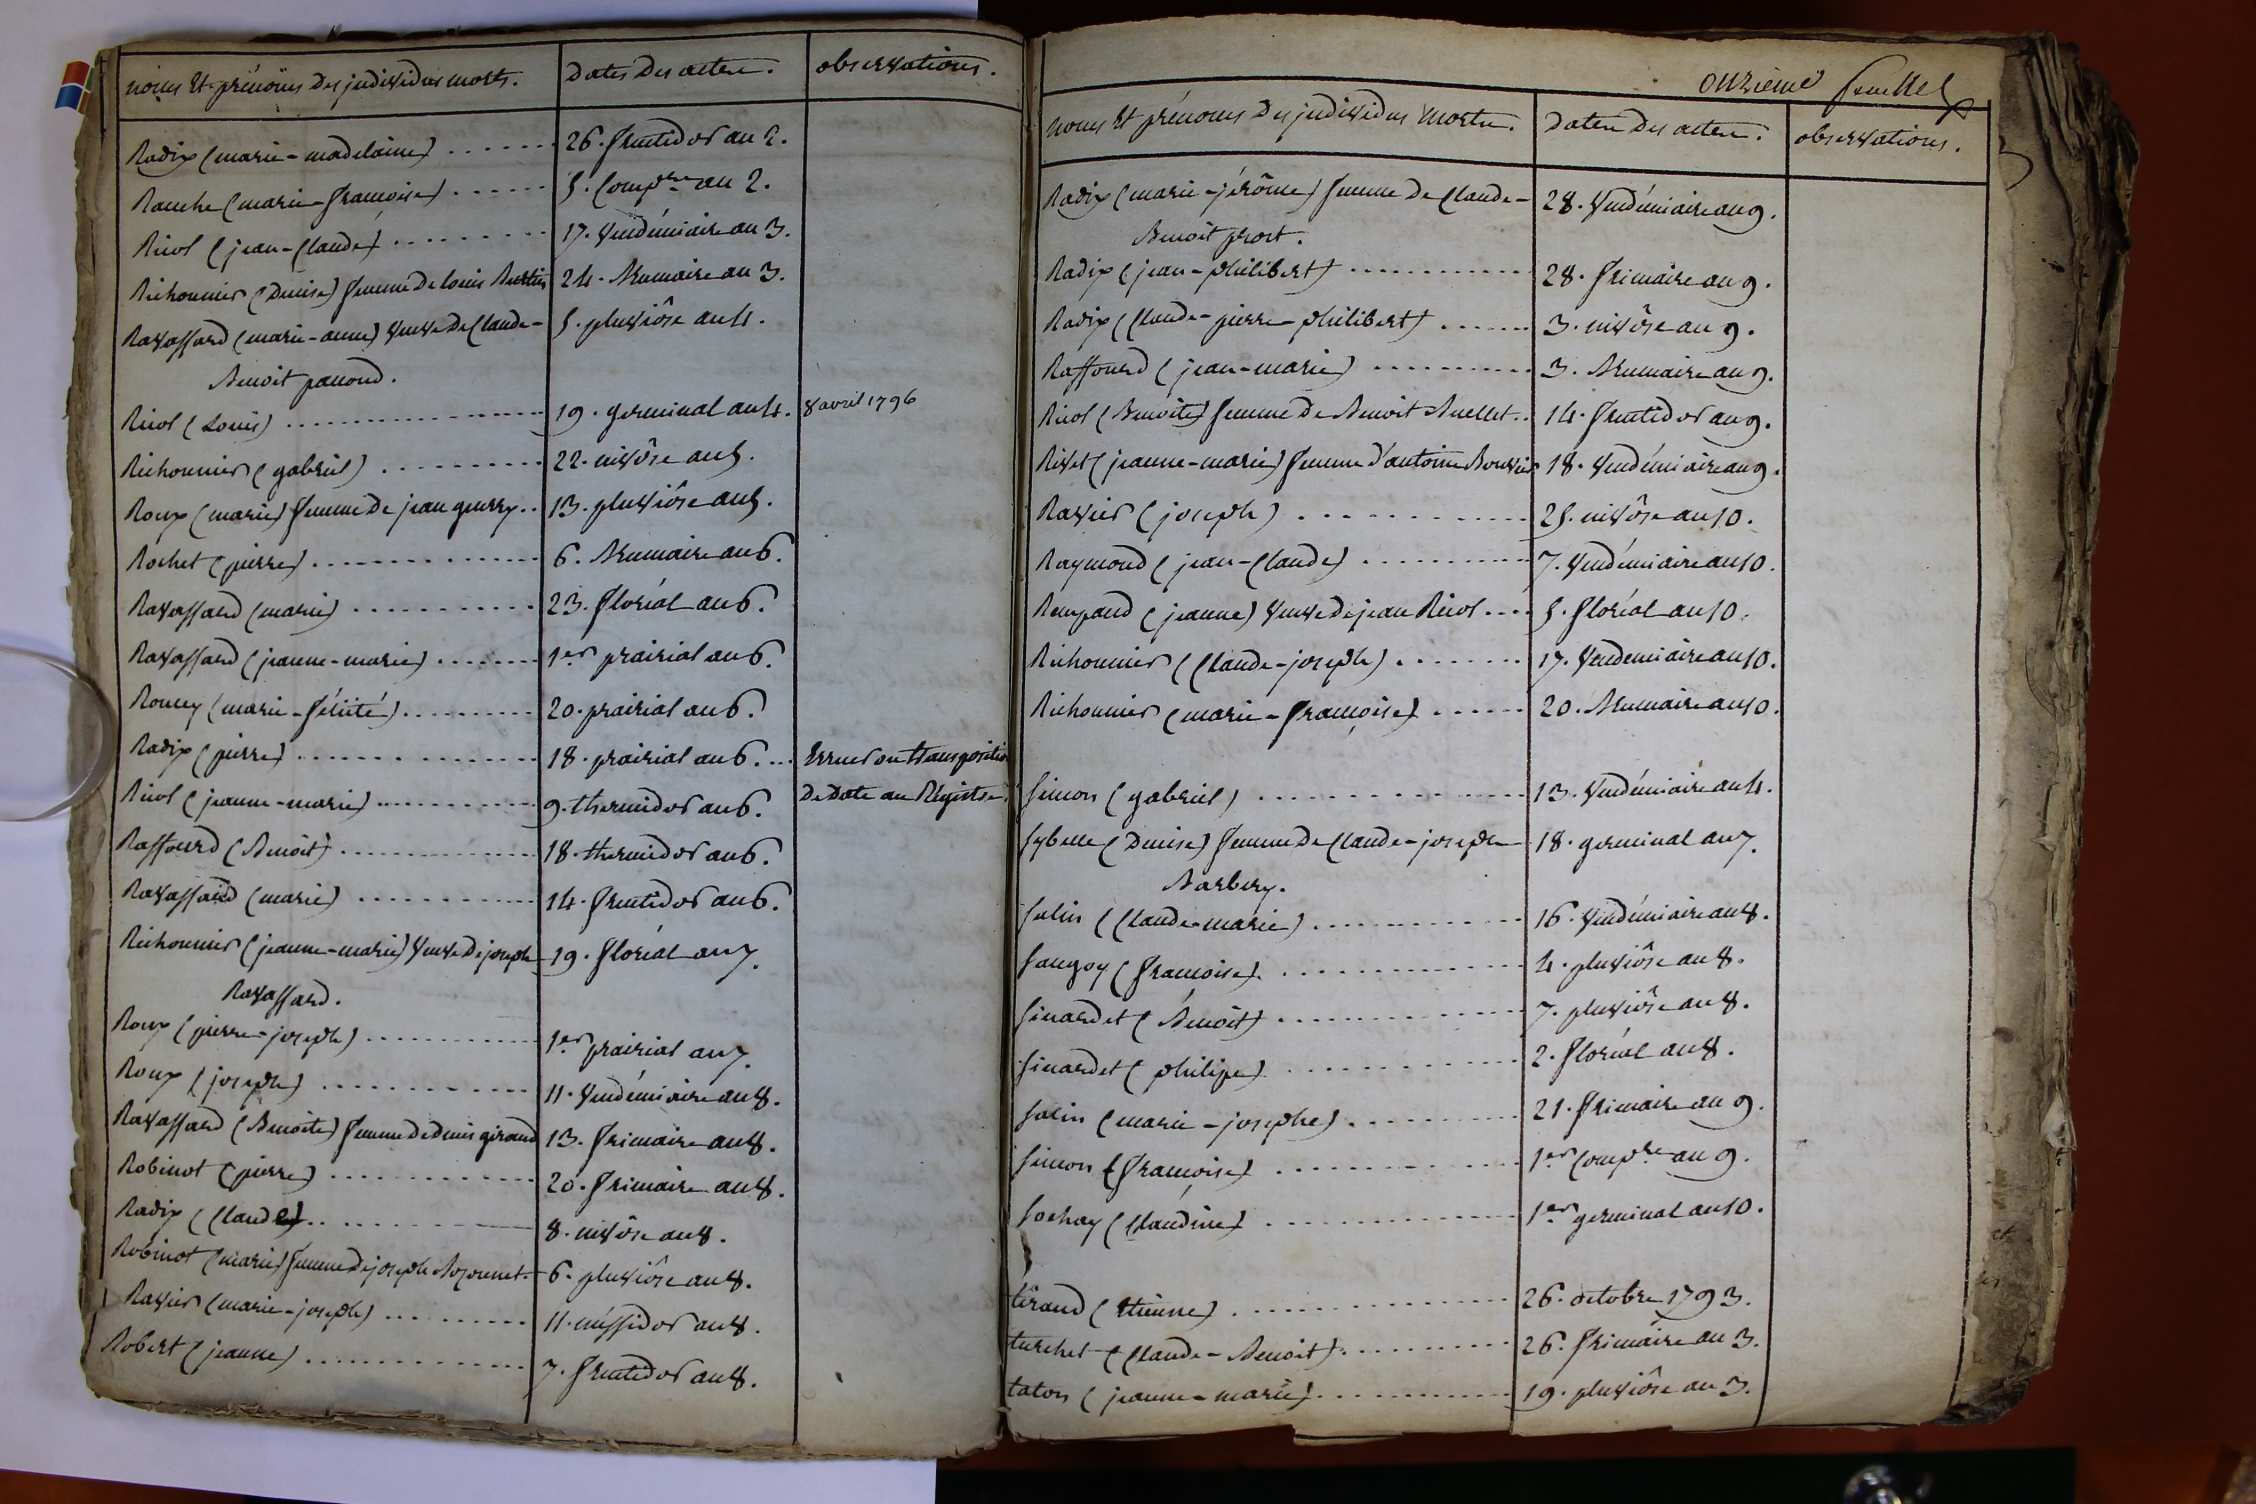 noms Et prénoms des individus morts. Dates des actes. observations.
Radix (marie-madelaine) 26. fructidor an 2.
Rauche (marie-françoise) 5. Comp.re an 2.
Ricol (jean-Claude) 17. Vendémiaire an 3.
Richonnier (Denise) femme De Louis Berthier 24. Brumaire an 3.
Ravassard (marie-anne) Veuve De Claude- 5. pluviôse an 4.
Benoit panoud.
Ricol (Louis) 19. germinal an 4. 8 avril 1796
Richonnier (gabriel) 22. nivôse an 5.
Roux (marie) femme De jean guerry 13. pluviôse an 5.
Rochet (pierre) 6. Brumaire an 6.
Ravassard (marie) 23. floréal an 6.
Ravassard (jeanne-marie) 1.er prairial an 6.
Roucy (marie-félicité) 20. prairial an 6.
Radix (pierre) 18. prairial an 6. Erreur ou transposition
Ricol (jeanne-marie) 9. thermidor an 6. De Date au Régistre.
Raffourd (Benoit) 18. thermidor an 6.
Ravassard (marie) 14. fructidor an 6.
Richonnier (jeanne-marie) Veuve De joseph 19. floréal an 7.
Ravassard.
Roux (pierre-joseph) 1.er prairial an 7.
Roux (joseph) 11. Vendémiaire an 8.
Ravassard (Benoite) femme De Denis giraud 13. frimaire an 8.
Robinot (pierre) 20. frimaire an 8.
Radix (Claude) 8. nivôse an 8.
Robinot (marie) femme De joseph 6. pluviôse an 8.
Ravier (marie-joseph) 11. messidor an 8.
Robert (jeanne) 7. fructidor an 8.
onzième feuillet
noms Et prénoms des individus morts. Dates des actes. observations.
Radix (marie-jérôme) femme De Claude- 28. Vendémiaire an 9.
Benoit prost.
Radix (jean-philibert) 28. frimaire an 9.
Radix (Claude-pierre-philibert) 3. nivôse an 9.
Raffourd (jean-marie) 3. Brumaire an 9.
Ricol (Benoite) femme De Benoit Buellet 14. fructidor an 9.
Rivet (jeanne-marie) femme d'antoine Bouvier 18. Vendémiaire an 9.
Ravier (joseph) 25. nivôse an 10.
Raymond (jean-Claude) 7. Vendémiaire an 10.
Rempaud (jeanne) Veuve De jean Ricol 5. floréal an 10.
Richonnier (Claude-joseph) 17. Vendemiaire an 10.
Richonnier (marie-françoise) 20. Brumaire an 10.
Simon (gabriel) 13. Vendémiaire an 4.
Sybelle (Denise) femme De Claude-joseph 18. germinal an 7.
Barbery.
Salin (Claude-marie) 16. Vendémiaire an 8.
Saugoy (françoise) 4. pluviôse an 8.
Sinardet (Benoit) 7. pluviôse an 8.
Sinardet (philipe) 2. floréal an 8.
Salin (marie-josephe) 21. frimaire an 9.
Simon (françoise) 1.er Comp.re an 9.
Sochay (Claudine) 1.er germinal an 10.
tiraud (Etienne) 26. octobre 1793.
turchet (Claude-Benoit) 26. frimaire an 3.
taton (jeanne-marie) 19. pluviôse an 3.